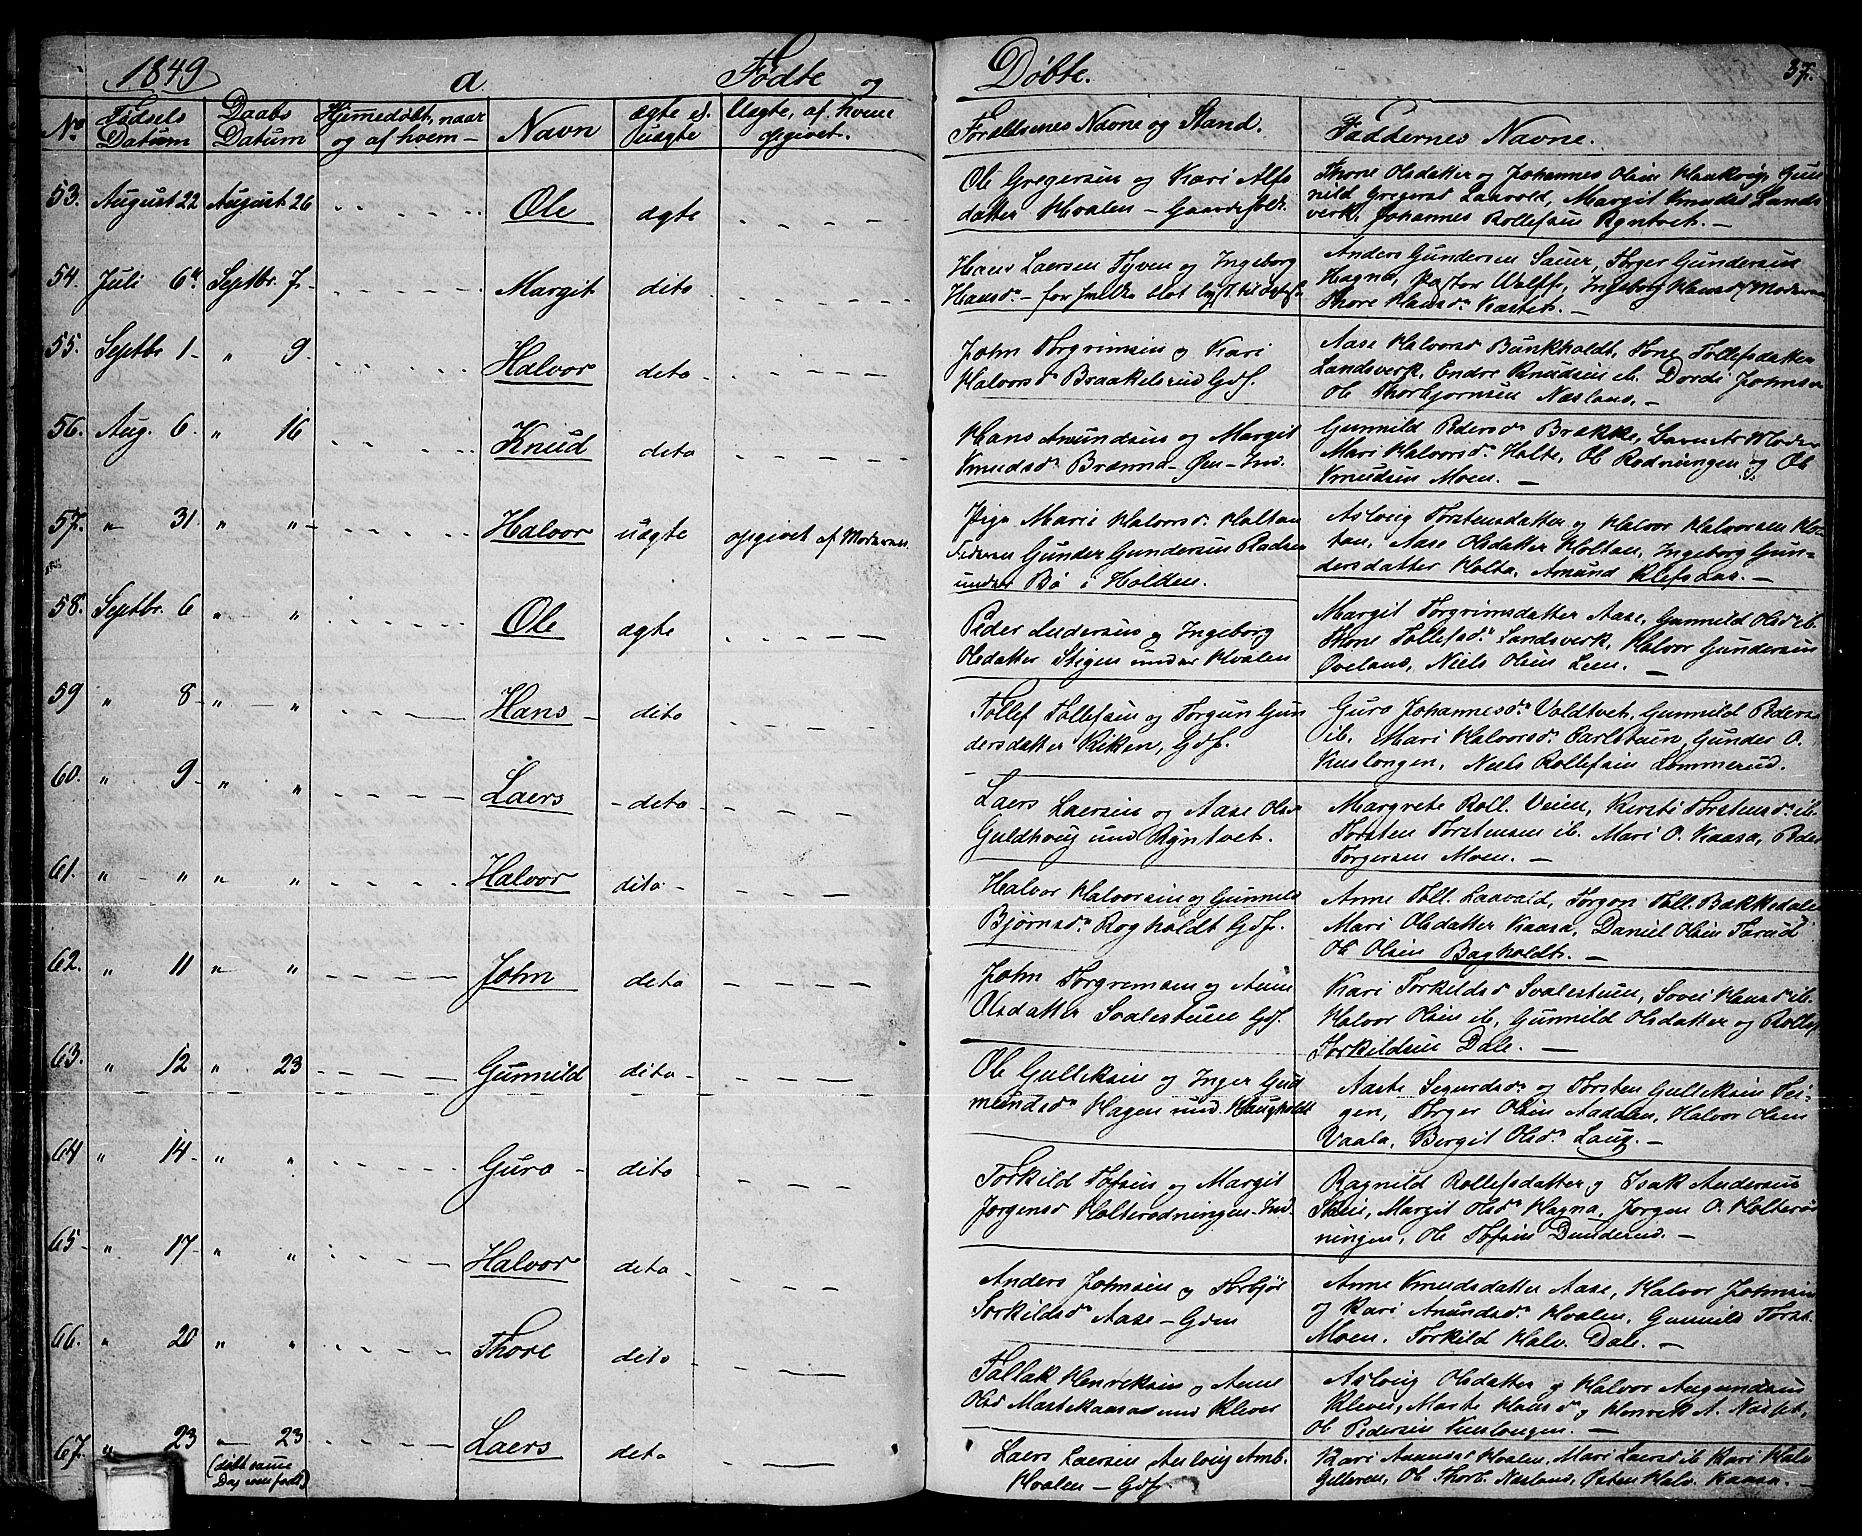 1849 a Fødte og Døbte. 37.
No Fødsels Datum Daabs Datum Hjemmedøbt, naar og af hvem Navn ægte el. uægte Uægte, af hvem opgivet. Forældrenes Navne og Stand. Faddernes Navne.
53. August 22 August 26 Ole ægte
Ole Gregersen og Kari Alfs
datter Hvalen - Gaardefolk.
Thone Olsdatter og Johannes Olsen Haukvig, Gun
nild Gregersd Laavold, Margit Knudsd Lands
verk, Johannes Rollefsen Ryntvet. -
54. Juli 6 Septbr. 7. Margit dito
Hans Laersen Tyven og Ingeborg
Hansd. -
Anders Gundersen Sauer, Torger Gundersen
Hagna, Pastor Wulff, Ingeborg Hansd Moderen
Thore Hansd Kastet. -
55. Septbr 1 " 9. Halvor dito
John Torgrimsen og Kari
Halvorsd Braakelsrud Gdf.
Aase Halvorsd Bunkholdt, Tone Tollefsdatter
Landsverk, Endre Knudsen ib. Dorde Johnsen
Ole Thorbjornsen Næsland. -
56. Aug. 6. " 16 Knud dito
Hans Amundsen og Margit
Knudsd Brænna - Gen - Ind.
Gunnild Pedersd Brække,
Mari Halvorsd. Holte, Ole Rodningen og Ole
Knudsen Moen. -
57. " 31 " " Halvor uægte opgivet af Moderen
Pige Mari Halvorsd. Holtan
Faderen Gunder Gundersen
under Bø i Holden.
Aslovig Torstensdatter og Halvor Halvorsen Hol
tan, Aase Olsdatter Holtan, Ingeborg Gun-
dersdatter Holta, Amund Klefsaas. -
58. Septbr. 6 " " Ole ægte
Peder Andersen og Ingeborg
Olsdatter Stigen under Hvalen
Margit Torgrimsdatter Aase, Gunnild Olsd ib.
Thone Tollefsd Landsverk, Halvor Gundersen
Oveland, Niels Olsen Leen. -
59 " 8 " " Hans dito
Tollef Tollefsen og Torgun Gun
dersdatter Riken, Gdf.
Guro Johannesd. Voldtvet, Gunnild Pedersd
ib. Mari Halvorsd. Carlstuen, Gunder O.
Kuslongen, Niels Rollefsen Lommerud.
60. " 9 " " Laers dito
Laers Laersen og Aase Olsd
Guldhoug und Ryntvet.
Margrete Roll. Veien, Kersti Torstensd. ib.
Torsten Torstensen ib. Mari O. Kaasa, Peder
Torgersen Moen. -
61. " " " " Halvor dito
Halvor Halvorsen og Gunnild
Bjørnsd. Rogholdt Gdf.
Anne Toll. Laavald, Torgon Toll. Bækkedale
Mari Olsdatter Kaasa, Daniel Olsen Tarud
Ole Olsen Bagholdt. -
62. " 11 " " John dito
John Torgrimsen og Anne
Olsdatter Svalestuen Gdf.
Kari Torkildsd Svalestuen, Sovei Hansd ib.
Halvor Olsen ib, Gunnild Olsdatter og Rollef
Torkildsen Dale. -
63. " 12 " 23 Gunnild dito
Ole Gulleksen og Inger Gud
mundsd Hagen und. Haugholdt
Aaste Segurdsd og Torsten Gulleksen Tei-
gen, Torger Olsen Aadden, Halvor Olsen
Vaala, Bergit Olsd. Laug. -
64 " 14 " " Guro dito
Torkild Tofsen og Margit
Jørgensd Holterodningen - Ind.
Ragnild Rollefsdatter og Isak Andersen
Skeie, Margit Olsd Hagna, Jørgen O. Holterød
ningen, Ole Tofsen Dunderud. -
65 " 17 " " Halvor dito
Anders Johnsen og Torbjør
Torkildsd Aase - Gdm
Anne Knudsdatter Aase, Halvor Johnsen
og Kari Anundsd. Hvalen, Gunnild Torst.
Moen, Torkild Halv. Dale. -
66. " 20 " " Thore dito
Tallak Henriksen og Anne
Olsd Mastekaasa und Klever
Aslovig Olsdatter og Halvor Augundsen
Klever, Marte Hansd og Henrik A. Naset,
Ole Pedersen Kuslongen. -
67. " 23 " 23 (døbt samme Dag som født) Laers dito
Laers Laersen, Aslovig Amb.
Hvalen - Gdf.
Kari Anundsd Hvalen, Mari Laersd ib Kari Halv
Gilleven, Ole Thorb. Næsland, Peter Halv. Kaasa. -